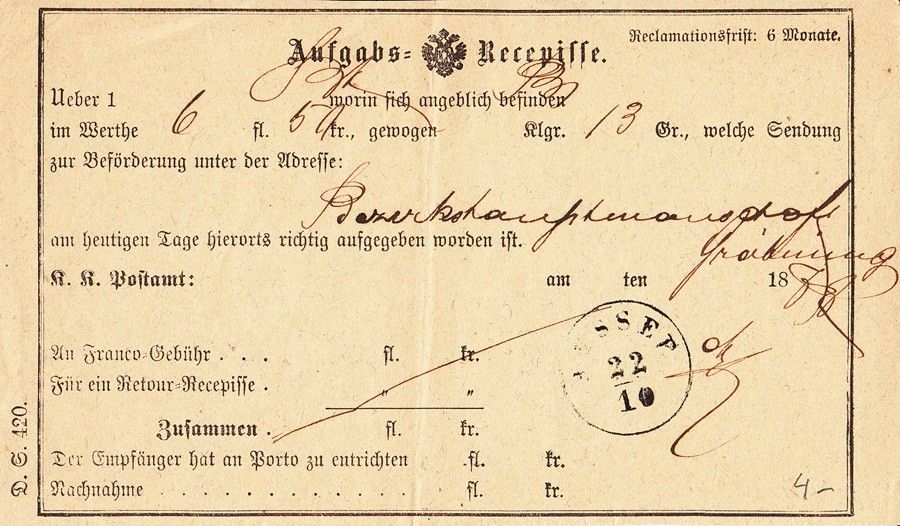 Reclamationsfrist: 6 Monate.
Aufgabs-Recepisse.
Ueber 1 worin sich angeblich befinden
im Werthe 6 fl. 50 kr., gewogen Klgr. 13 Gr., welche Sendung
zur Beförderung unter der Adresse:
Bezirkshauptmannschaft
am heutigen Tage hierorts richtig aufgegeben worden ist.
Gröbming
K. K. Postamt: am ten 18
AUSSEE
22
10
An Franco-Gebühr . . . fl. kr.
Für ein Retour-Recepisse . „ „
Zusammen . fl. kr.
Der Empfänger hat an Porto zu entrichten fl. kr.
Nachnahme . . . . . . . . . . fl. kr.
D. S. 420.
4-